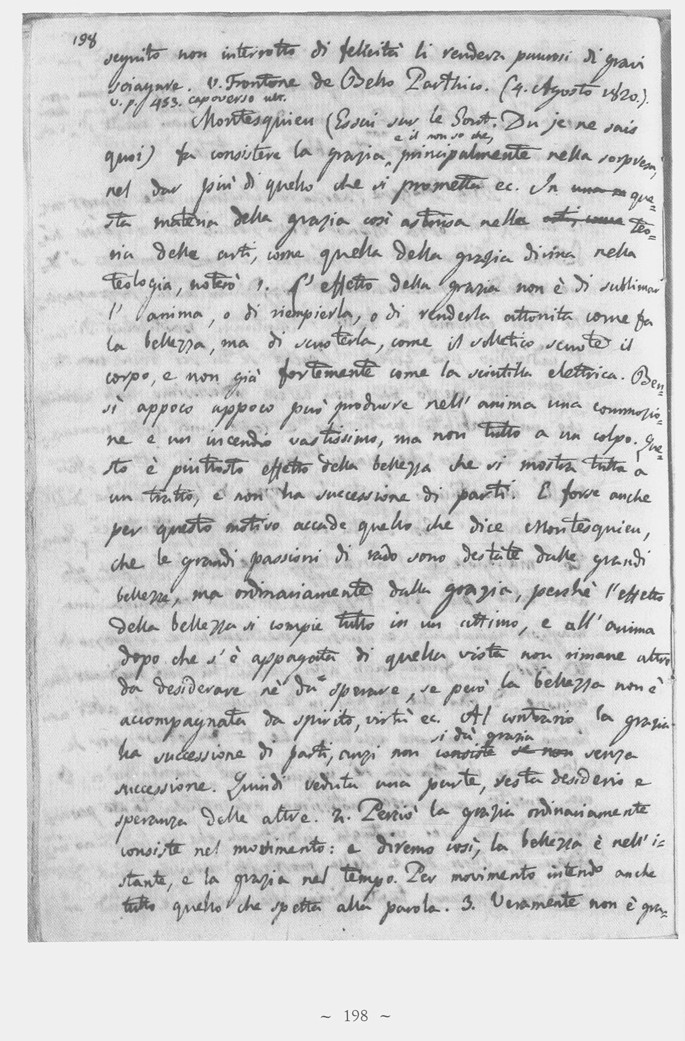 198
seguito non interrotto di felicità li rendeva paurosi di gravi
sciagure. V. Frontone de Bello Parthico. (4. Agosto 1820.).
v. p. 453. capoverso ult.
Montesquieu (Essai sur le Gout. Du je ne sais
e il non so che,
quoi) fa consistere la grazia, principalmente nella sorpresa,
nel dar più di quello che si prometta ec. In que-
sta materia della grazia così astrusa nella teo-
ria delle arti, come quella della grazia divina nella
teologia, noterò 1. L'effetto della grazia non è di sublimar
l'anima, o di riempierla, o di renderla attonita come fa
la bellezza, ma di scuoterla, come il solletico scuote il
corpo, e non già fortemente come la scintilla elettrica. Ben-
sì appoco appoco può produrre nell'anima una commozio-
ne e un incendio vastissimo, ma non tutto a un colpo. Que-
sto è piuttosto effetto della bellezza che si mostra tutta a
un tratto, e non ha successione di parti. E forse anche
per questo motivo accade quello che dice Montesquieu,
che le grandi passioni di rado sono destate dalle grandi
bellezze, ma ordinariamente dalla grazia, perchè l'effetto
della bellezza si compie tutto in un attimo, e all'anima
dopo che s'è appagata di quella vista non rimane altro
da desiderare nè da sperare, se però la bellezza non è
accompagnata da spirito, virtù ec. Al contrario la grazia
si dà grazia
ha successione di parti, anzi non consiste se non senza
successione. Quindi veduta una parte, resta desiderio e
speranza delle altre. 2. Perciò la grazia ordinariamente
consiste nel movimento: e diremo così, la bellezza è nell'i-
stante, e la grazia nel tempo. Per movimento intendo anche
tutto quello che spetta alla parola. 3. Veramente non è gra-
~ 198 ~